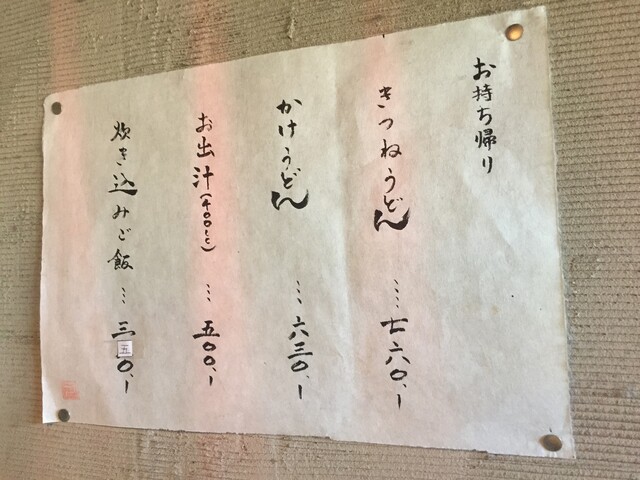 お持ち帰り
きつねうどん …… 七六〇、ー
かけうどん … 六三〇、ー
お出汁(400cc) … 五〇〇、ー
炊き込みご飯 … 三五〇、ー